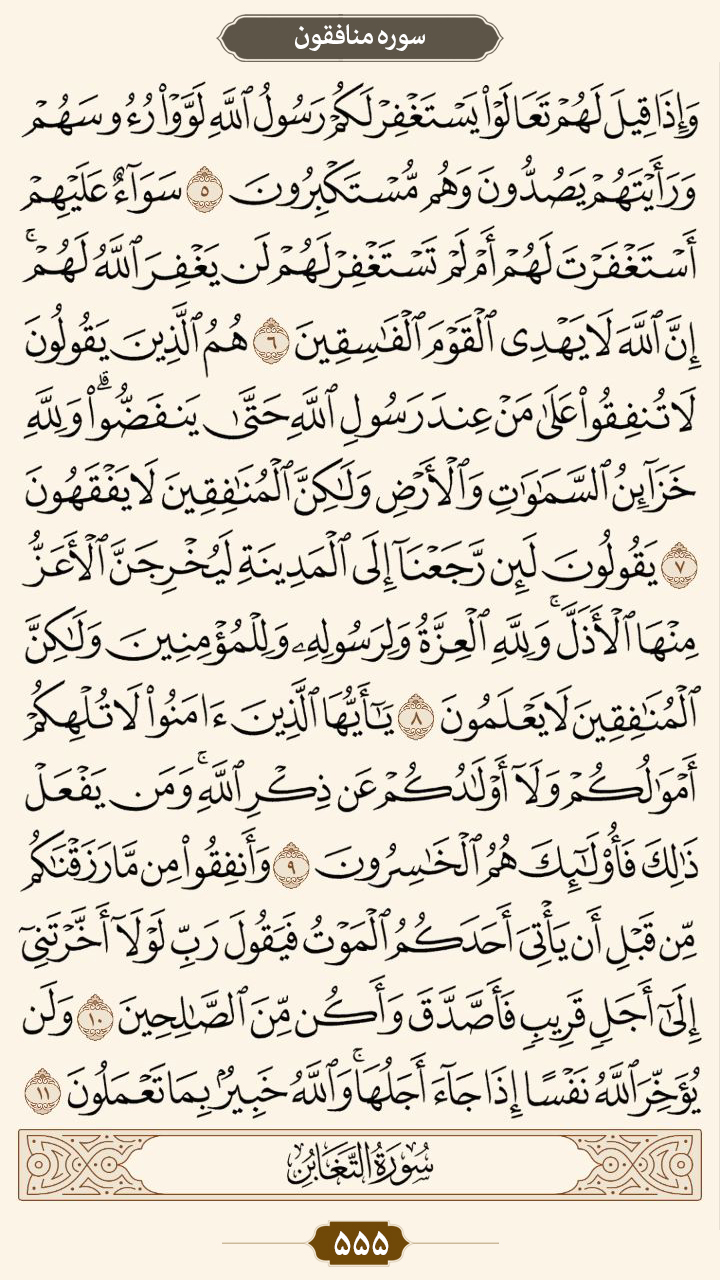 سوره منافقون
وَإِذَا قِيلَ لَهُمْ تَعَالَوْا۟ يَسْتَغْفِرْ لَكُمْ رَسُولُ ٱللَّهِ لَوَّوْا۟ رُءُوسَهُمْ
وَرَأَيْتَهُمْ يَصُدُّونَ وَهُم مُّسْتَكْبِرُونَ ٥ سَوَآءٌ عَلَيْهِمْ
أَسْتَغْفَرْتَ لَهُمْ أَمْ لَمْ تَسْتَغْفِرْ لَهُمْ لَن يَغْفِرَ ٱللَّهُ لَهُمْ ۚ
إِنَّ ٱللَّهَ لَا يَهْدِى ٱلْقَوْمَ ٱلْفَـٰسِقِينَ ٦ هُمُ ٱلَّذِينَ يَقُولُونَ
لَا تُنفِقُوا۟ عَلَىٰ مَنْ عِندَ رَسُولِ ٱللَّهِ حَتَّىٰ يَنفَضُّوا۟ ۗ وَلِلَّهِ
خَزَآئِنُ ٱلسَّمَـٰوَٰتِ وَٱلْأَرْضِ وَلَـٰكِنَّ ٱلْمُنَـٰفِقِينَ لَا يَفْقَهُونَ
٧ يَقُولُونَ لَئِن رَّجَعْنَآ إِلَى ٱلْمَدِينَةِ لَيُخْرِجَنَّ ٱلْأَعَزُّ
مِنْهَا ٱلْأَذَلَّ ۚ وَلِلَّهِ ٱلْعِزَّةُ وَلِرَسُولِهِۦ وَلِلْمُؤْمِنِينَ وَلَـٰكِنَّ
ٱلْمُنَـٰفِقِينَ لَا يَعْلَمُونَ ٨ يَـٰٓأَيُّهَا ٱلَّذِينَ ءَامَنُوا۟ لَا تُلْهِكُمْ
أَمْوَٰلُكُمْ وَلَآ أَوْلَـٰدُكُمْ عَن ذِكْرِ ٱللَّهِ ۚ وَمَن يَفْعَلْ
ذَٰلِكَ فَأُو۟لَـٰٓئِكَ هُمُ ٱلْخَـٰسِرُونَ ٩ وَأَنفِقُوا۟ مِن مَّا رَزَقْنَـٰكُم
مِّن قَبْلِ أَن يَأْتِىَ أَحَدَكُمُ ٱلْمَوْتُ فَيَقُولَ رَبِّ لَوْلَآ أَخَّرْتَنِىٓ
إِلَىٰٓ أَجَلٍ قَرِيبٍ فَأَصَّدَّقَ وَأَكُن مِّنَ ٱلصَّـٰلِحِينَ ١٠ وَلَن
يُؤَخِّرَ ٱللَّهُ نَفْسًا إِذَا جَآءَ أَجَلُهَا ۚ وَٱللَّهُ خَبِيرٌۢ بِمَا تَعْمَلُونَ ١١
سُورَةُ التَّغَابُنِ
۵۵۵